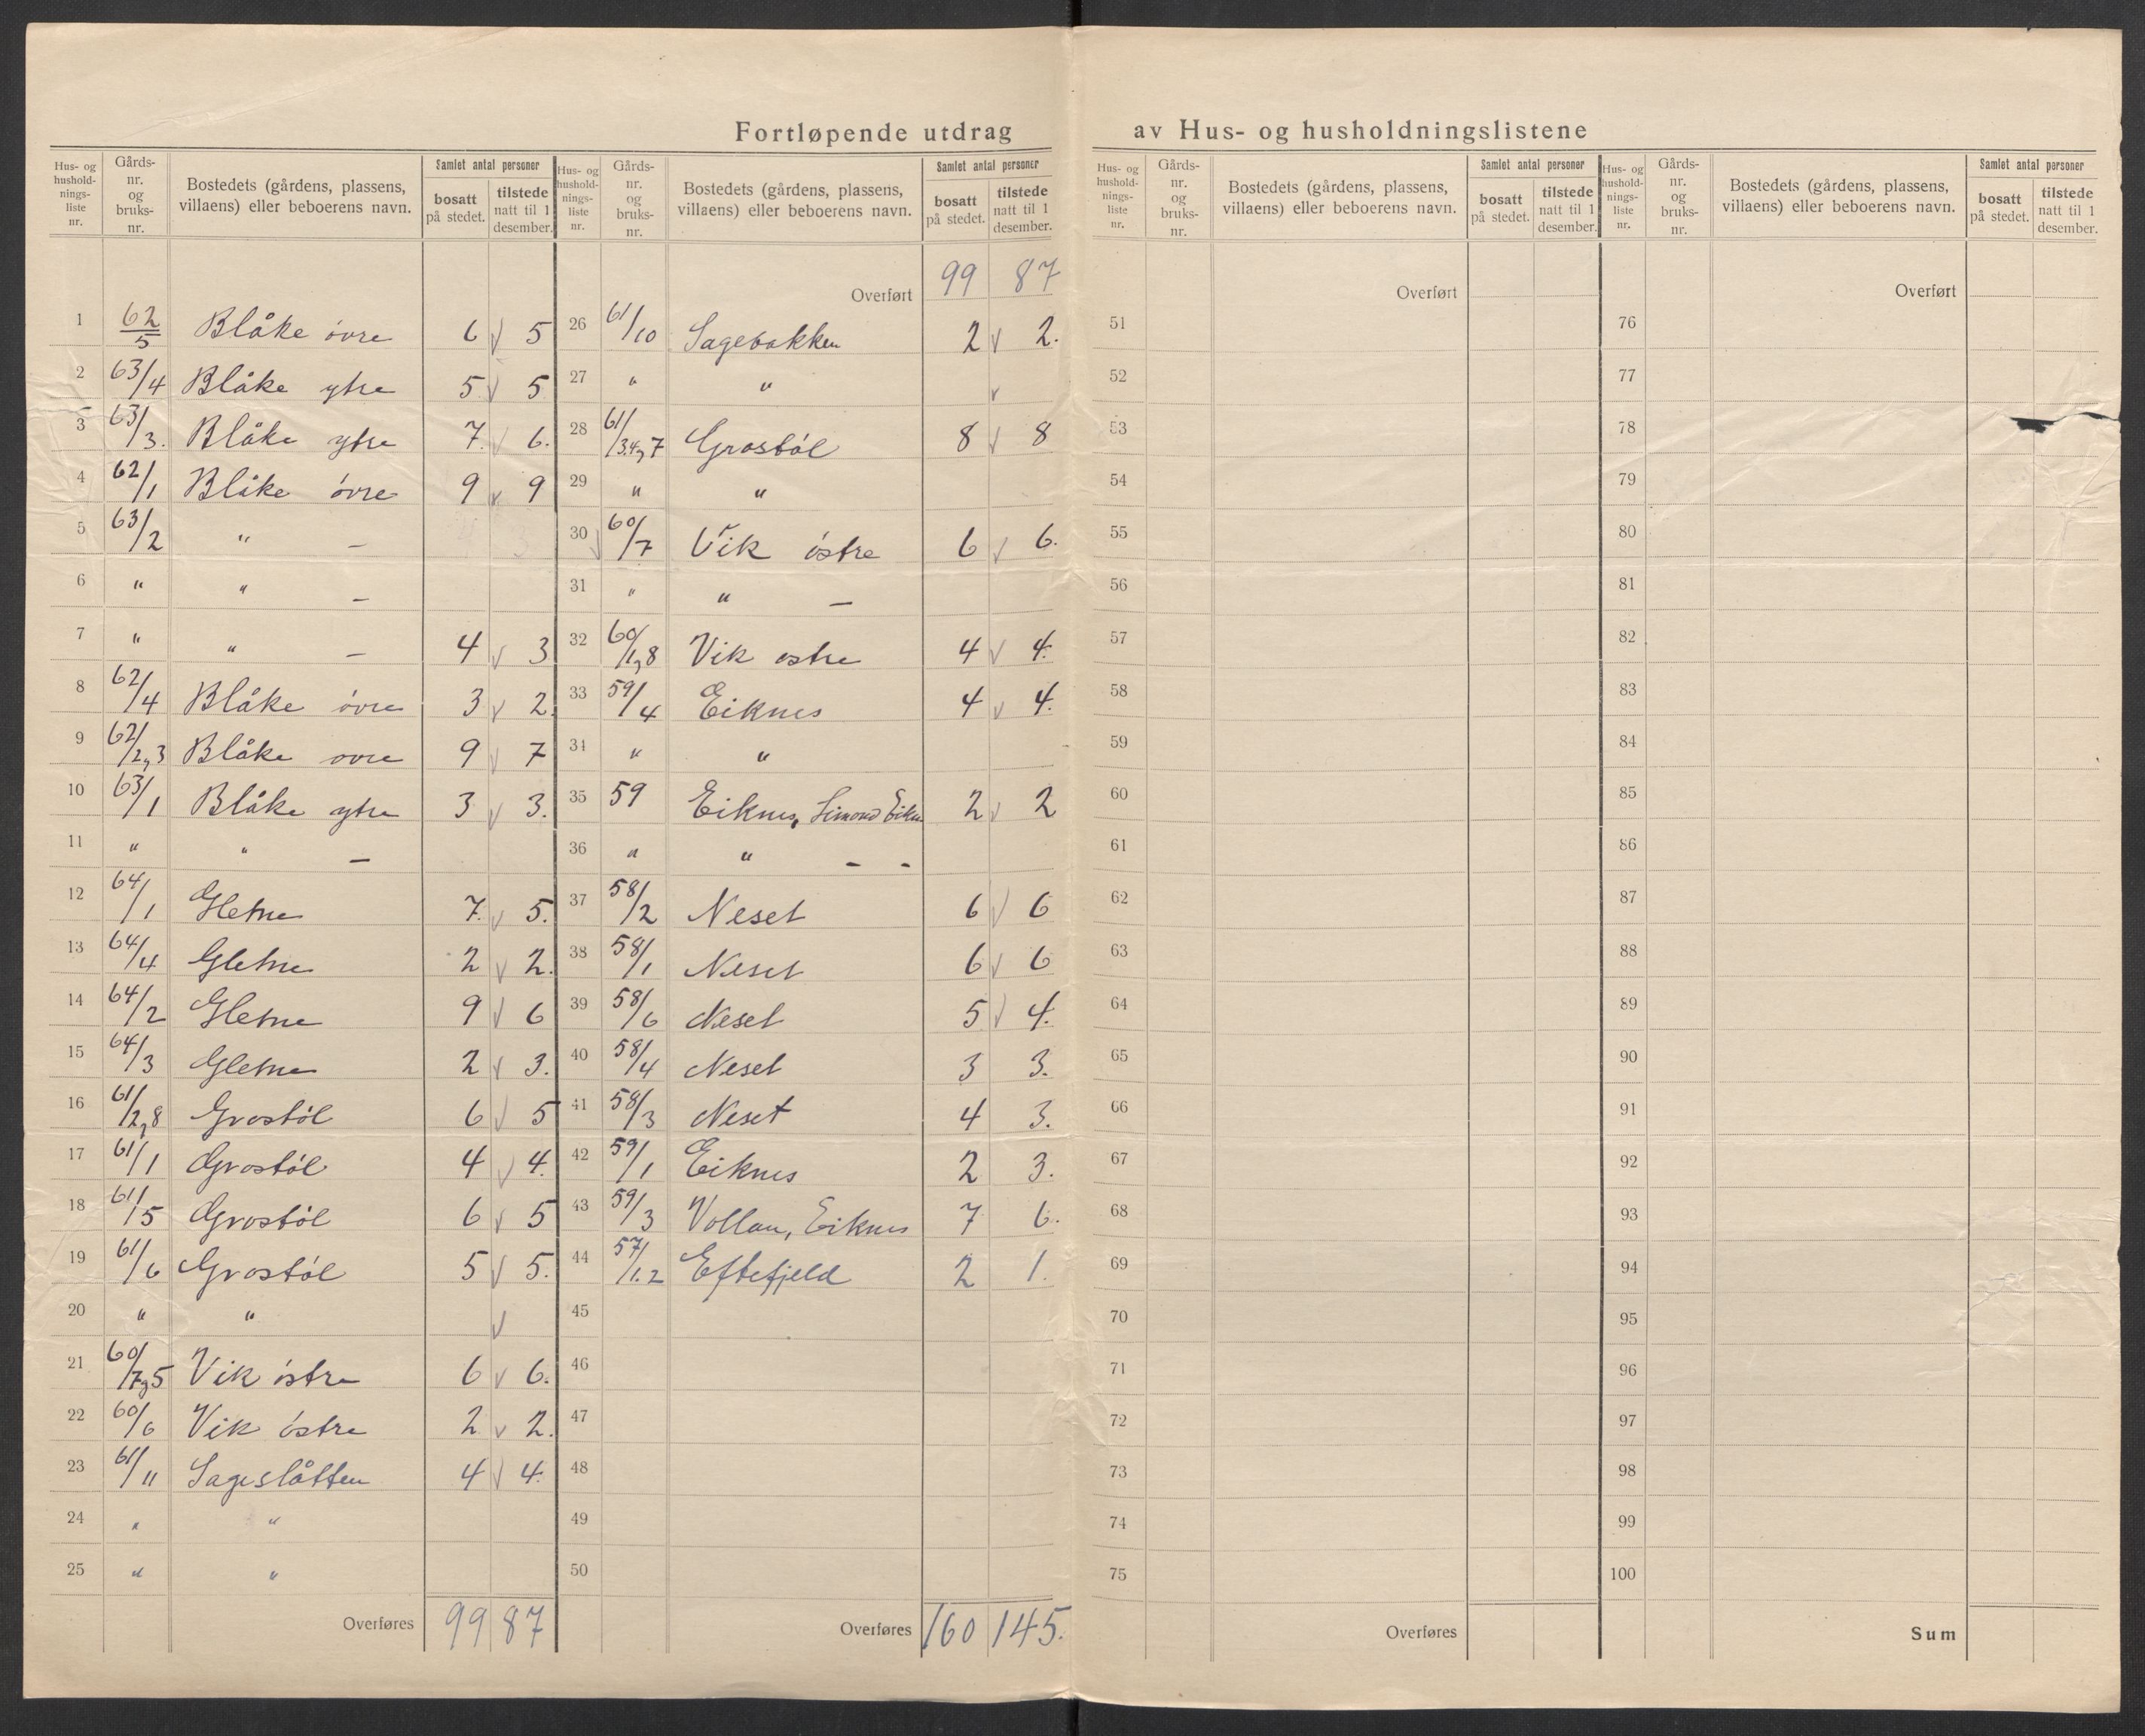 Fortløpende utdrag av Hus- og husholdningslistene
Hus- og hushold- nings- liste nr. | Gårds- nr. og bruks- nr. | Bostedets (gårdens, plassens, villaens) eller beboerens navn. | Samlet antal personer | bosatt på stedet. | tilstede natt til 1 desember.
1 62/5 Blåke övre 6 5
2 63/4 Blåke ytre 5 5
3 63/3. Blåke ytre 7. 6.
4 62/1 Blåke övre 9 9
5 63/2 " –
6 " " –
7 " " – 4 3
8 62/4 Blåke övre 3 2.
9 62/2,3 Blåke ovre 9 7
10 63/1 Blåke ytre 3 3.
11 " " –
12 64/1 Gletne 7. 5.
13 64/4 Gletne 2 2.
14 64/2 Gletne 9 6
15 64/3 Gletne 2 3.
16 61/2,8 Grostöl 6 5
17 61/1 Grostöl 4 4.
18 61/5 Grostöl 6 5
19 61/6 Grostöl 5 5.
20 " "
21 60/7,5 Vik östre 6 6.
22 60/6 Vik östre 2 2.
23 61/11 Sageslåtten 4 4.
24 " "
25 " "
Overføres 99 87
Hus- og hushold- nings- liste nr. | Gårds- nr. og bruks- nr. | Bostedets (gårdens, plassens, villaens) eller beboerens navn. | Samlet antal personer | bosatt på stedet. | tilstede natt til 1 desember.
Overført 99 87
26 61/10 Sagebakken 2 2.
27 " "
28 61/3.4,7 Grostöl 8 8
29 " "
30 60/7 Vik östre 6 6.
31 " " –
32 60/1,8 Vik ostre 4 4.
33 59/4 Eiknes 4 4.
34 " "
35 59 Eiknes, Simond Eikn 2 2
36 " " – -
37 58/2 Neset 6 6
38 58/1 Neset 6 6
39 58/6 Neset 5 4.
40 58/4 Neset 3 3.
41 58/3 Neset 4 3.
42 59/1 Eiknes 2 3.
43 59/3 Vollan, Eiknes 7 6.
44 57/1.2 Eftefjeld 2 1.
45
46
47
48
49
50
Overføres 160 145.
Hus- og hushold- nings- liste nr. | Gårds- nr. og bruks- nr. | Bostedets (gårdens, plassens, villaens) eller beboerens navn. | Samlet antal personer | bosatt på stedet. | tilstede natt til 1 desember.
Overført
51
52
53
54
55
56
57
58
59
60
61
62
63
64
65
66
67
68
69
70
71
72
73
74
75
Overføres
Hus- og hushold- nings- liste nr. | Gårds- nr. og bruks- nr. | Bostedets (gårdens, plassens, villaens) eller beboerens navn. | Samlet antal personer | bosatt på stedet. | tilstede natt til 1 desember.
Overført
76
77
78
79
80
81
82
83
84
85
86
87
88
89
90
91
92
93
94
95
96
97
98
99
100
Sum